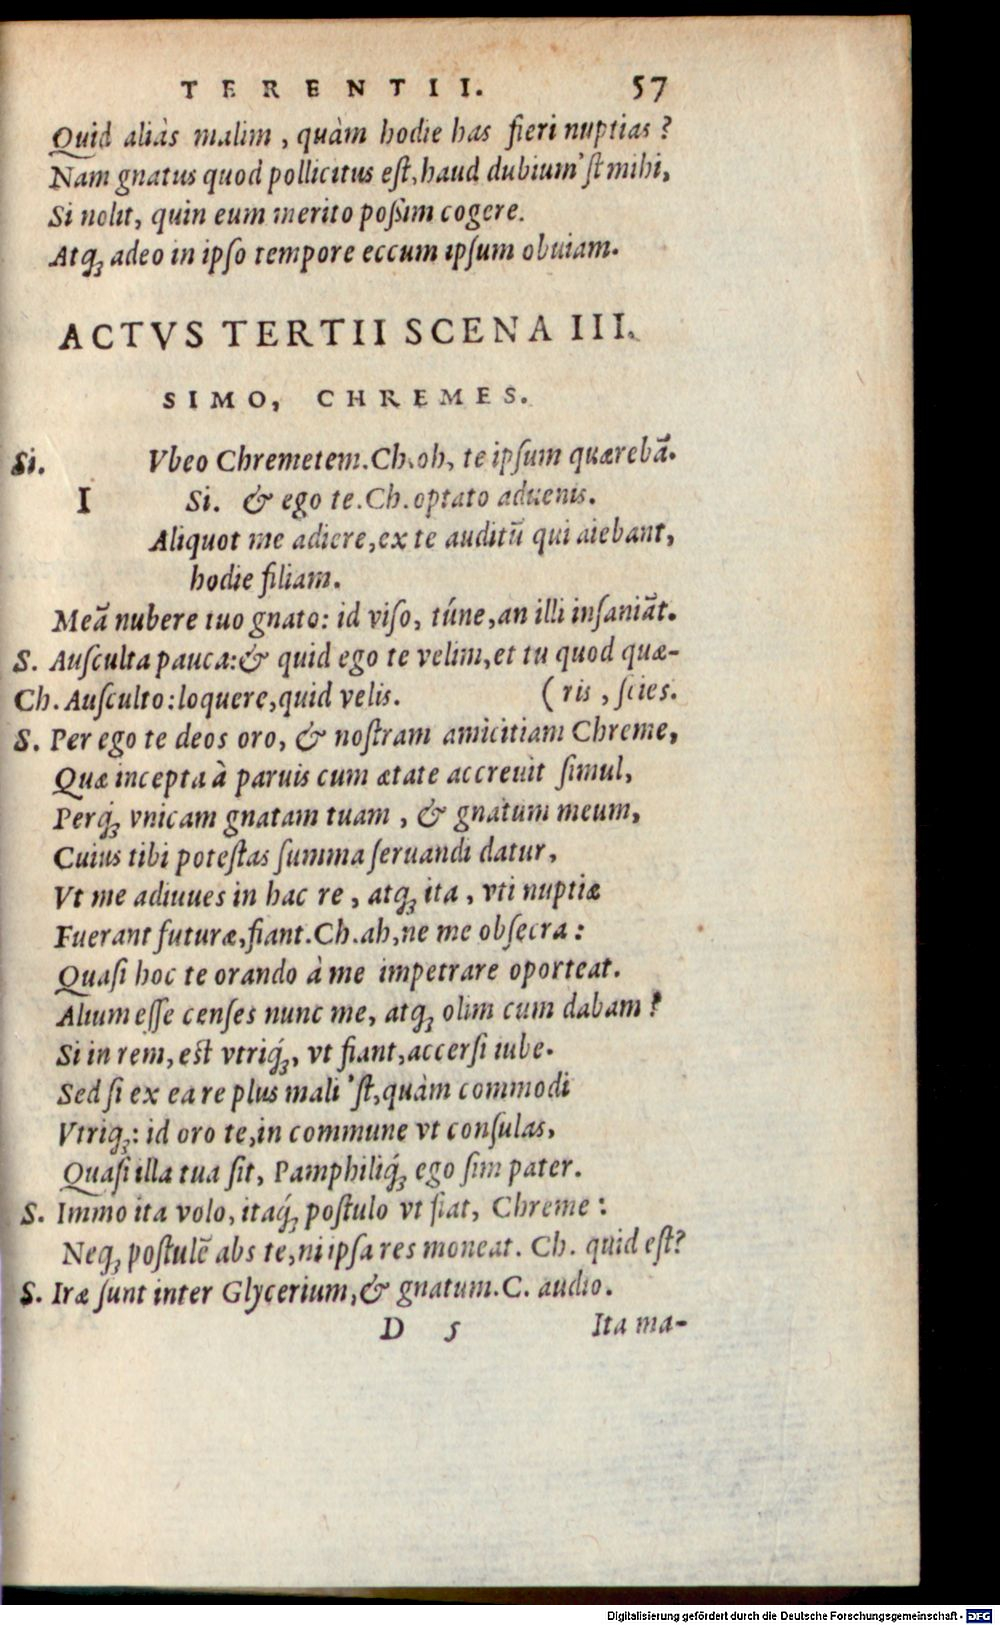 TERENTII. 57
Quid aliàs malim, quàm hodie has fieri nuptias?
Nam gnatus quod pollicitus eſt, haud dubium'ſt mihi,
Si nolit, quin eum merito poßim cogere.
Atq₃ adeo in ipſo tempore eccum ipſum obuiam.
ACTVS TERTII SCENA III.
SIMO, CHREMES.
Si. Vbeo Chremetem. Ch. oh, te ipſum quærebã.
I Si. & ego te. Ch. optato aduenis.
Aliquot me adiere, ex te auditũ qui aiebant,
hodie filiam.
Meã nubere tuo gnato: id viſo, túne, an illi inſaniãt.
S. Auſculta pauca: & quid ego te velim, et tu quod quæ-
Ch. Auſculto: loquere, quid velis. (ris, ſcies.
S. Per ego te deos oro, & noſtram amicitiam Chreme,
Quæ incepta à paruis cum ætate accreuit ſimul,
Perq́₃ vnicam gnatam tuam, & gnatum meum,
Cuius tibi poteſtas ſumma ſeruandi datur,
Vt me adiuues in hac re, atq₃ ita, vti nuptiæ
Fuerant futuræ, fiant. Ch. ah, ne me obſecra:
Quaſi hoc te orando à me impetrare oporteat.
Alium eſſe censes nunc me, atq₃ olim cum dabam?
Si in rem, eſt vtriq́₃, vt fiant, accerſi iube.
Sed ſi ex ea re plus mali'ſt, quàm commodi
Vtriq₃: id oro te, in commune vt conſulas,
Quaſi illa tua ſit, Pamphiliq́₃ ego ſim pater.
S. Immo ita volo, itaq́₃ poſtulo vt fiat, Chreme:
Neq₃ poſtulẽ abs te, ni ipſa res moneat. Ch. quid eſt?
S. Iræ ſunt inter Glycerium, & gnatum. C. audio.
D 5 Ita ma-
Digitalisierung gefördert durch die Deutsche Forschungsgemeinschaft - DFG